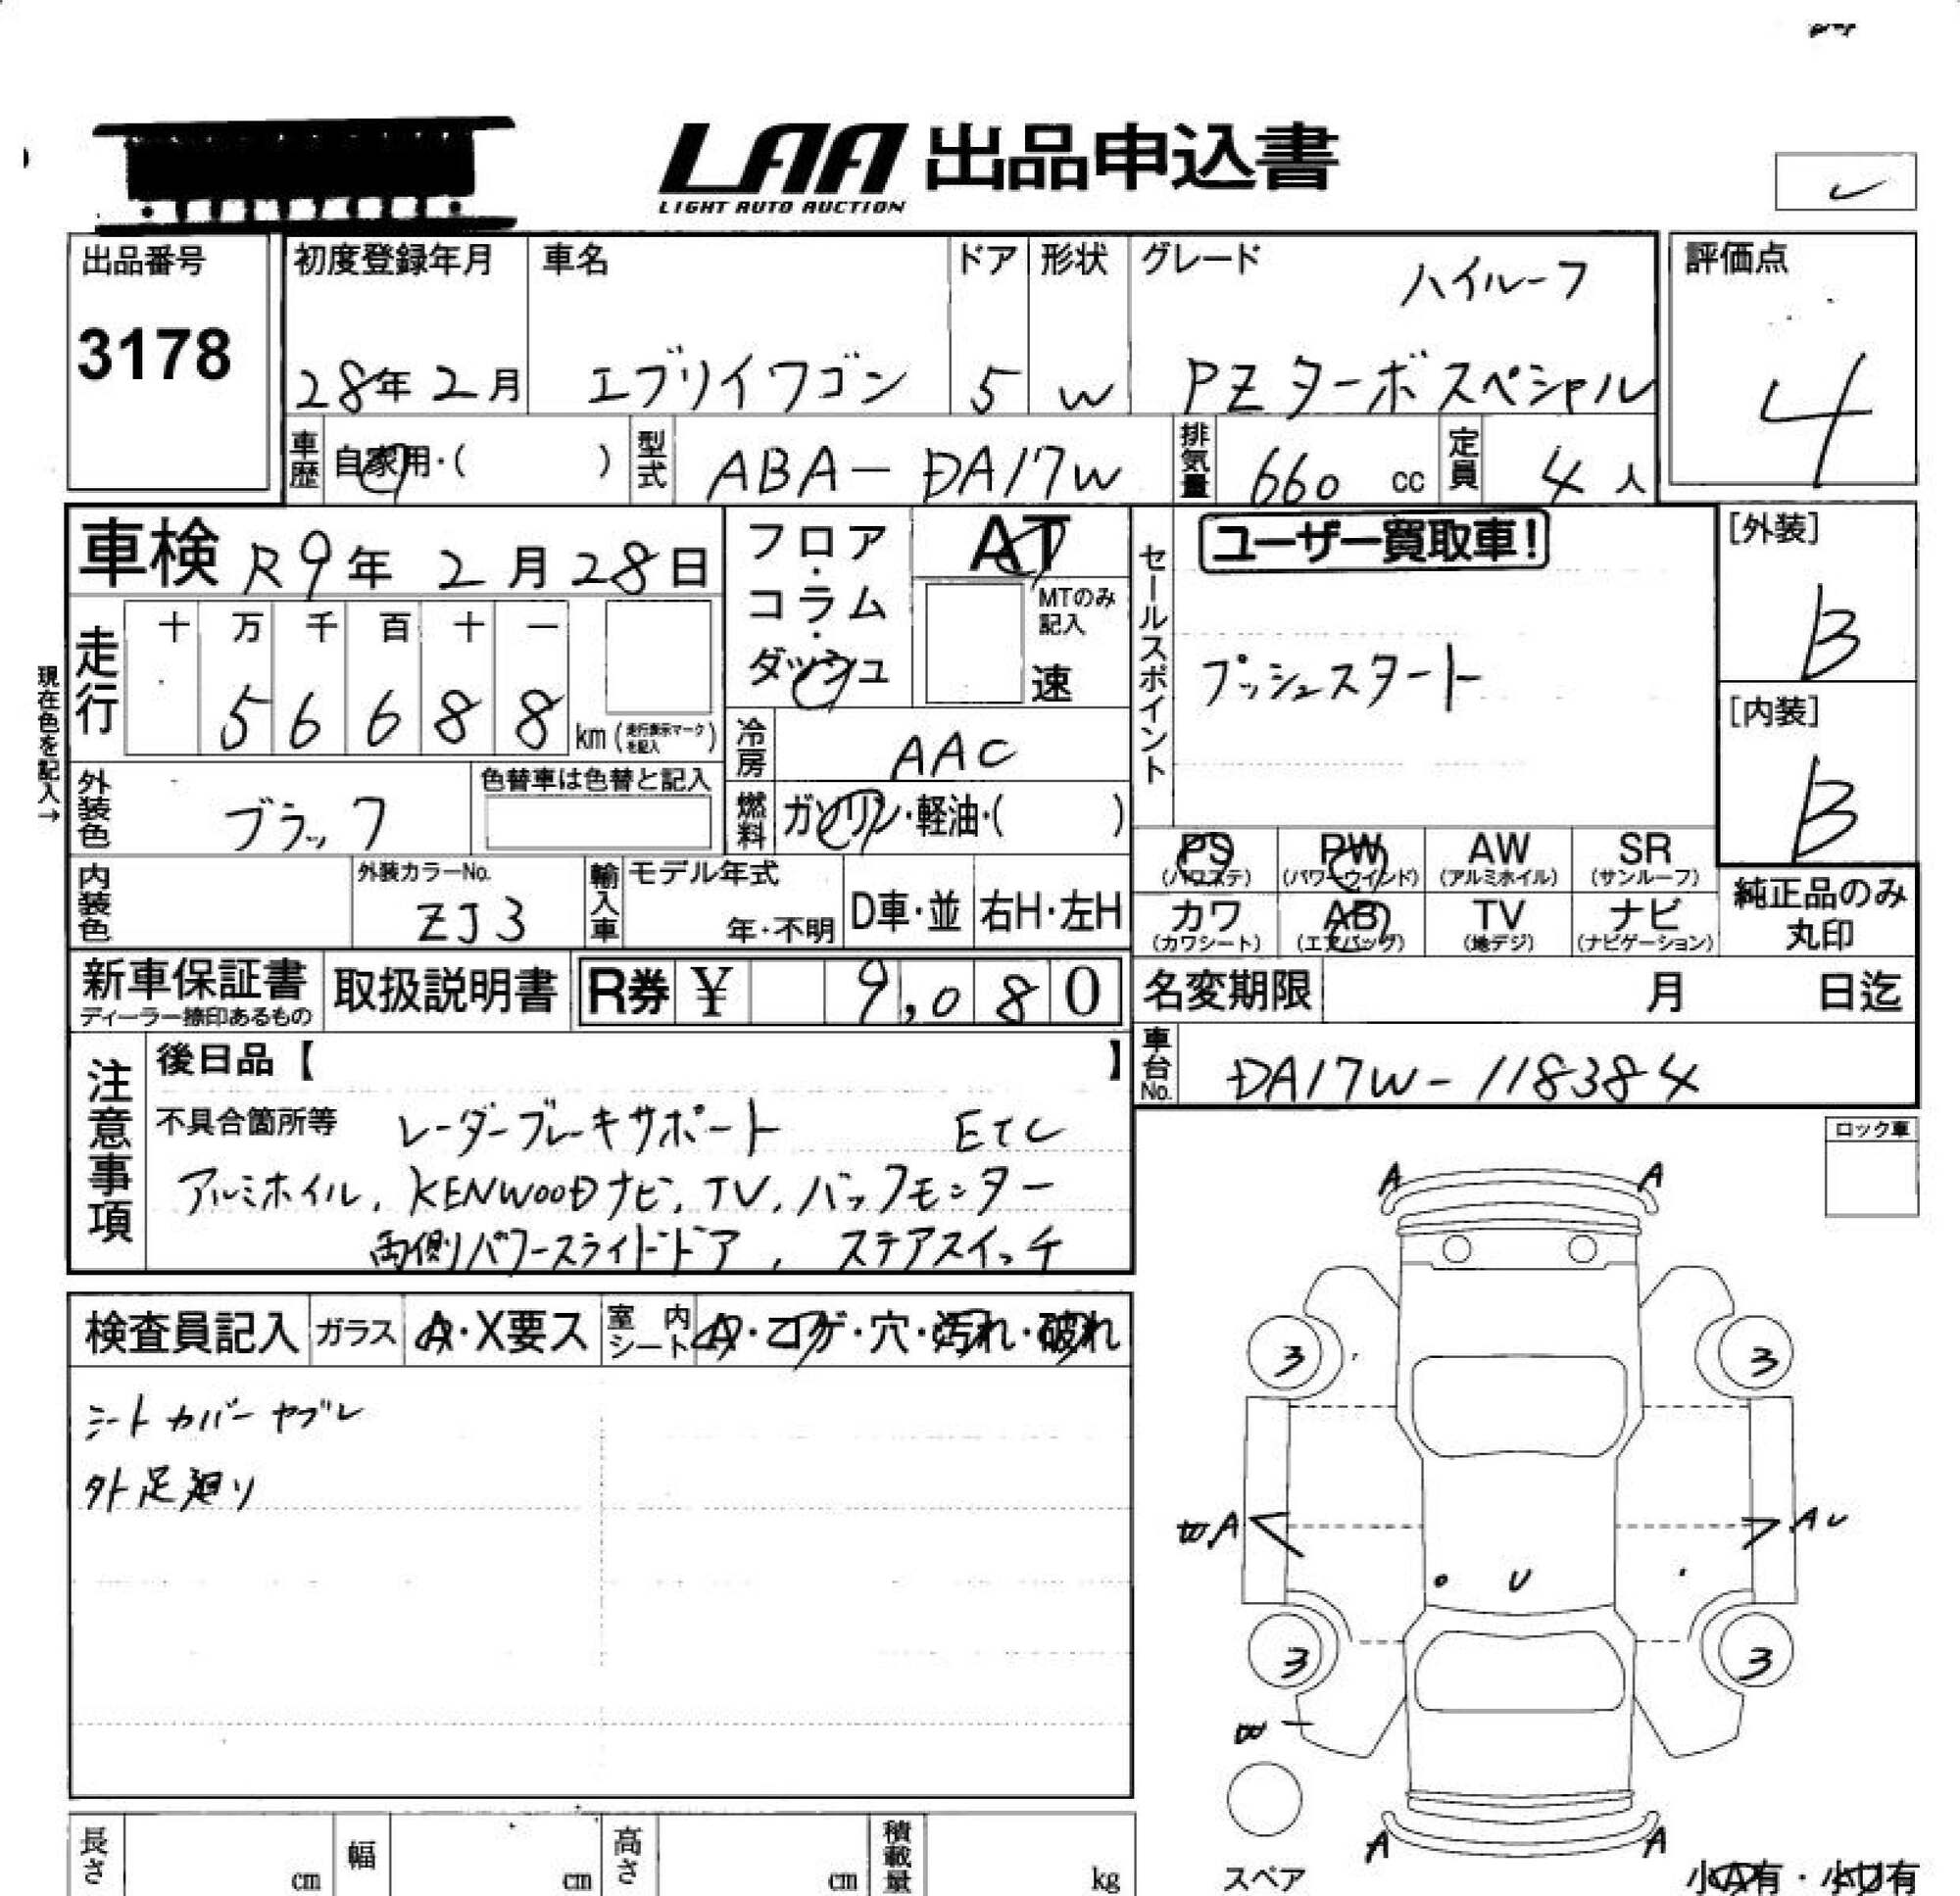 LAA 出品申込書
LIGHT AUTO AUCTION
出品番号
3178
初度登録年月
28年 2月
車名
エブリイワゴン
ドア
5
形状
W
グレード
ハイルーフ
PZ ターボ スペシャル
評価点
4
車歴 自家用・( )
型式 ABA-DA17W
排気量 660 cc
定員 4 人
車検 R9年 2月28日
フロア・コラム・ダッシュ
AT
MTのみ記入
速
セールスポイント
ユーザー買取車!
プッシュスタート
[外装]
B
[内装]
B
現在色を記入→
走行
十 万 千 百 十 一
5 6 6 8 8
km (走行表示マークを記入)
冷房 AAC
外装色 ブラック
色替車は色替と記入
燃料 ガソリン・軽油・( )
PS (パワステ)
PW (パワーウインド)
AW (アルミホイル)
SR (サンルーフ)
カワ (カワシート)
AB (エアバッグ)
TV (地デジ)
ナビ (ナビゲーション)
純正品のみ丸印
内装色
外装カラーNo.
ZJ3
輸入車
モデル年式
年・不明
D車・並
右H・左H
新車保証書
ディーラー捺印あるもの
取扱説明書
R券 ¥ 9,080
名変期限 月 日迄
車台No. DA17W-118384
注意事項
後日品【 】
不具合箇所等 レーダーブレーキサポート ETC
アルミホイル, KENWOODナビ, TV, バックモニター
両側パワースライドドア, ステアスイッチ
ロック車
検査員記入 ガラス A・X要ス 室内シート A・コゲ・穴・汚れ・破れ
シートカバーヤブレ
外足廻り
A A
3 3
A A U
U
3 3
A A
スペア
小A有・小U有
長さ cm
幅 cm
高さ cm
積載量 kg